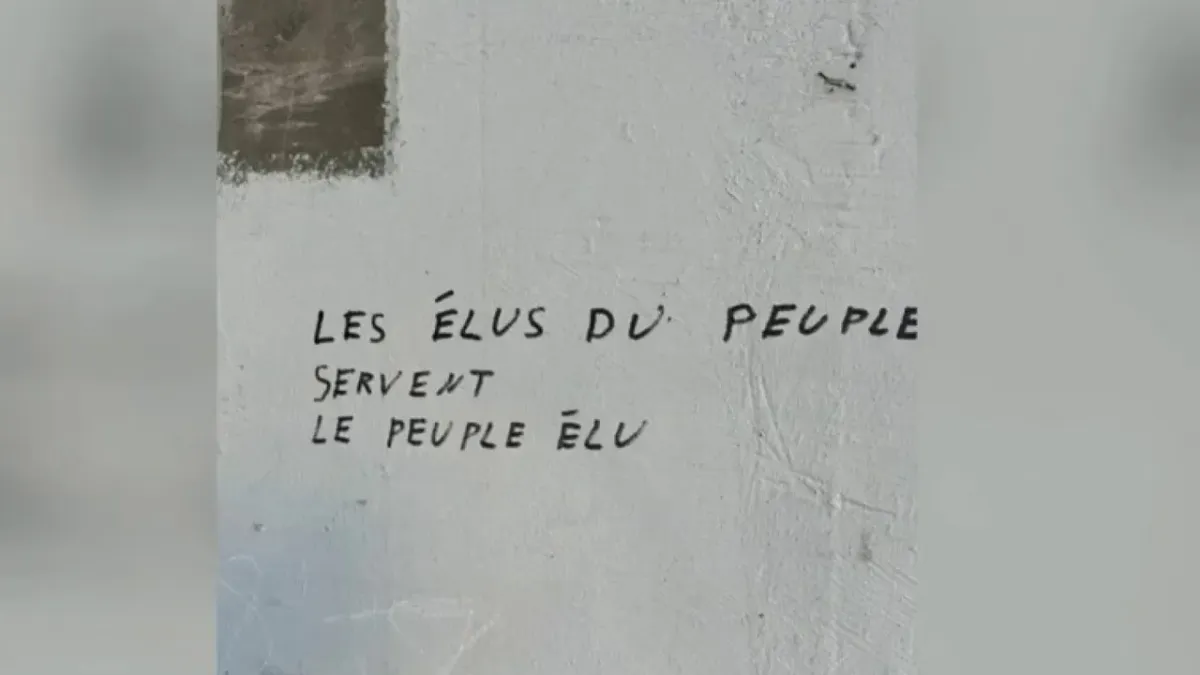 LES ÉLUS DU PEUPLE
SERVENT
LE PEUPLE ÉLU